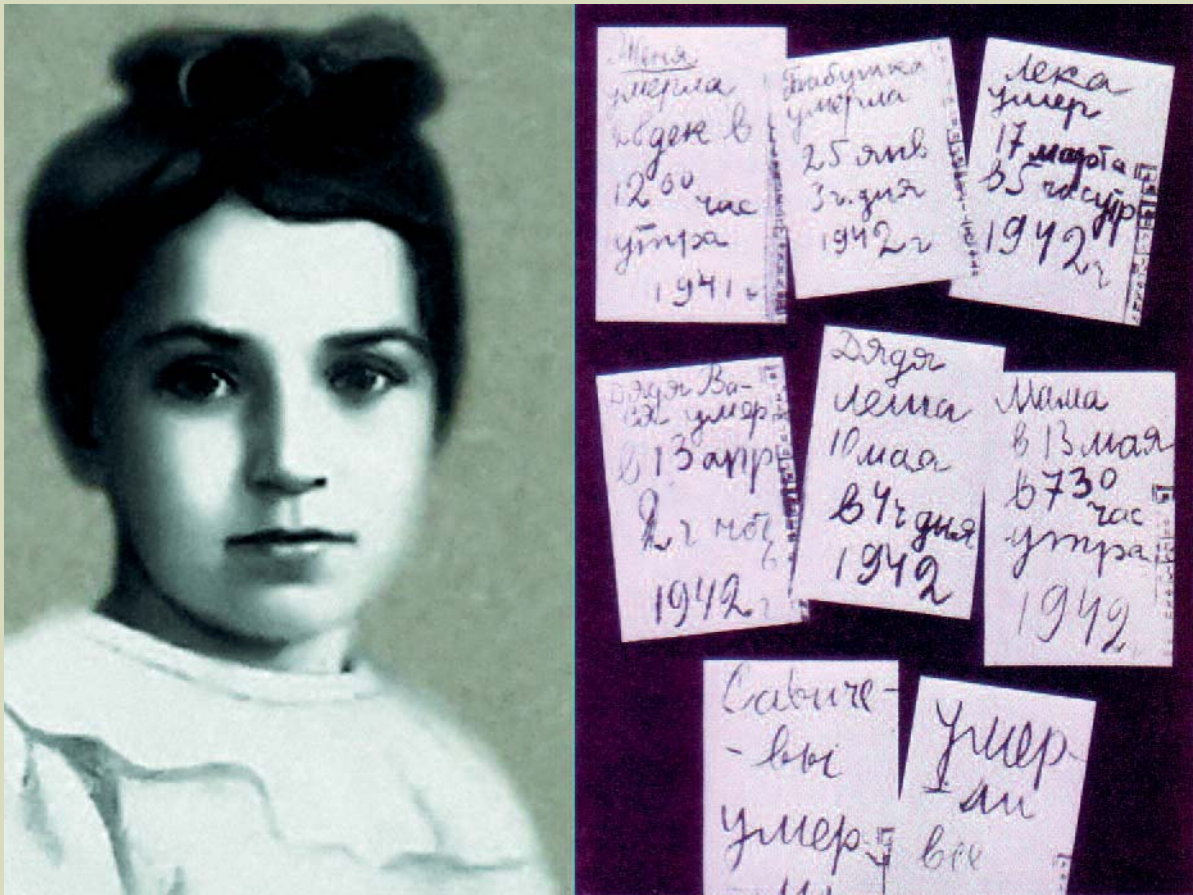 Женя
умерла
28 дек в
12 00 час
утра
1941 г
Бабушка
умерла
25 янв
3 ч. дня
1942 г
Лека
умер
17 марта
в 5 час утр
1942 г
Дядя Ва-
ся умер
в 13 апр
2 ч ночь
1942 г
Дядя
Леша
10 мая
в 4 ч дня
1942
Мама
в 13 мая
в 7 30
час
утра
1942
Савиче-
- вы
умер
Умер
ли
все